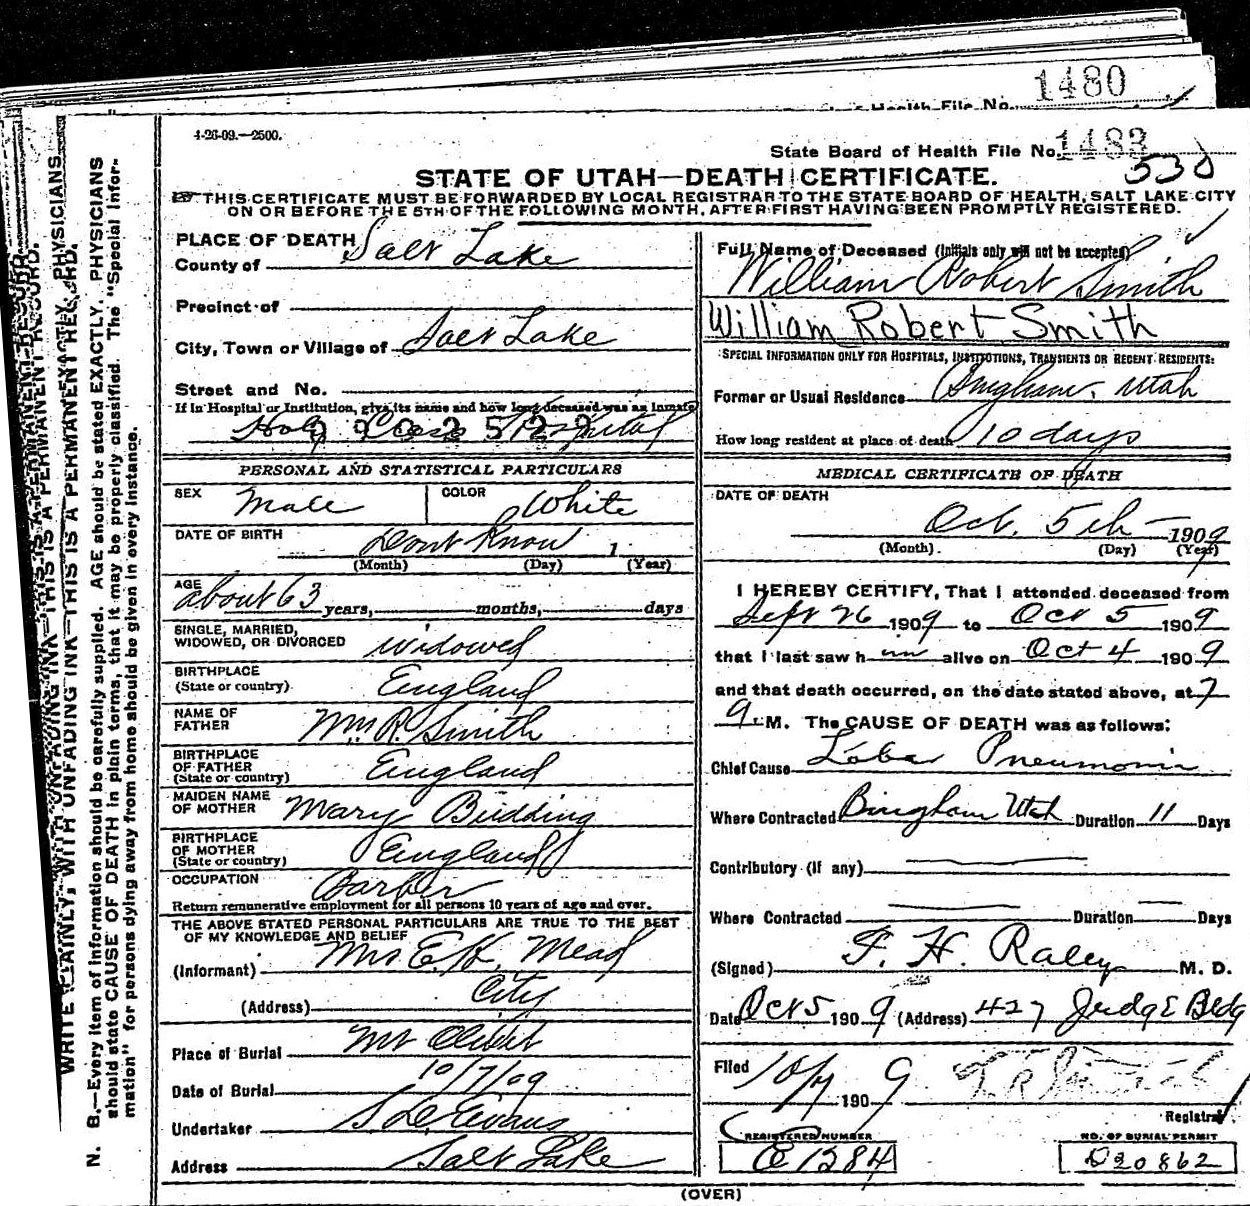 1480
Health File No.
4-26-09.—2500.
State Board of Health File No. 1483
530
STATE OF UTAH—DEATH CERTIFICATE.
THIS CERTIFICATE MUST BE FORWARDED BY LOCAL REGISTRAR TO THE STATE BOARD OF HEALTH, SALT LAKE CITY
ON OR BEFORE THE 5TH OF THE FOLLOWING MONTH, AFTER FIRST HAVING BEEN PROMPTLY REGISTERED.
PLACE OF DEATH
County of Salt Lake
Precinct of
City, Town or Village of Salt Lake
Street and No.
If in Hospital or Institution, give its name and how long deceased was an inmate
Holy Cross Hospital
PERSONAL AND STATISTICAL PARTICULARS
SEX Male COLOR White
DATE OF BIRTH Dont Know 1
(Month) (Day) (Year)
AGE
about 63 years, months, days
SINGLE, MARRIED,
WIDOWED, OR DIVORCED widowed
BIRTHPLACE
(State or country) England
NAME OF
FATHER Wm R. Smith
BIRTHPLACE
OF FATHER
(State or country) England
MAIDEN NAME
OF MOTHER Mary Budding
BIRTHPLACE
OF MOTHER
(State or country) England
OCCUPATION Barber
Return remunerative employment for all persons 10 years of age and over.
THE ABOVE STATED PERSONAL PARTICULARS ARE TRUE TO THE BEST
OF MY KNOWLEDGE AND BELIEF
(Informant) Mrs E. H. Mead
(Address) City
Place of Burial Mt Olivet
Date of Burial 10/7/09
Undertaker Evans
Address Salt Lake
Full Name of Deceased (Initials only will not be accepted)
William Robert Smith
William Robert Smith
SPECIAL INFORMATION ONLY FOR HOSPITALS, INSTITUTIONS, TRANSIENTS OR RECENT RESIDENTS:
Former or Usual Residence Bingham, Utah
How long resident at place of death 10 days
MEDICAL CERTIFICATE OF DEATH
DATE OF DEATH
Oct. 5th 1909
(Month). (Day) (Year)
I HEREBY CERTIFY, That I attended deceased from
Sept 26 1909 to Oct 5 1909
that I last saw him alive on Oct 4 1909
and that death occurred, on the date stated above, at 7
a. M. The CAUSE OF DEATH was as follows:
Chief Cause Lobar Pneumonia
Where Contracted Bingham Utah Duration 11 Days
Contributory (If any)
Where Contracted Duration Days
(Signed) F. H. Raley M. D.
Date Oct 5 1909 (Address) 427 Judge Bldg
Filed 10/7 1909
Registrar
REGISTERED NUMBER
E 1284
NO. OF BURIAL PERMIT
D20862
(OVER)
WRITE PLAINLY, WITH UNFADING INK—THIS IS A PERMANENT RECORD.
N. B.—Every item of information should be carefully supplied. AGE should be stated EXACTLY. PHYSICIANS
should state CAUSE OF DEATH in plain terms, that it may be properly classified. The "Special Infor-
mation" for persons dying away from home should be given in every instance.